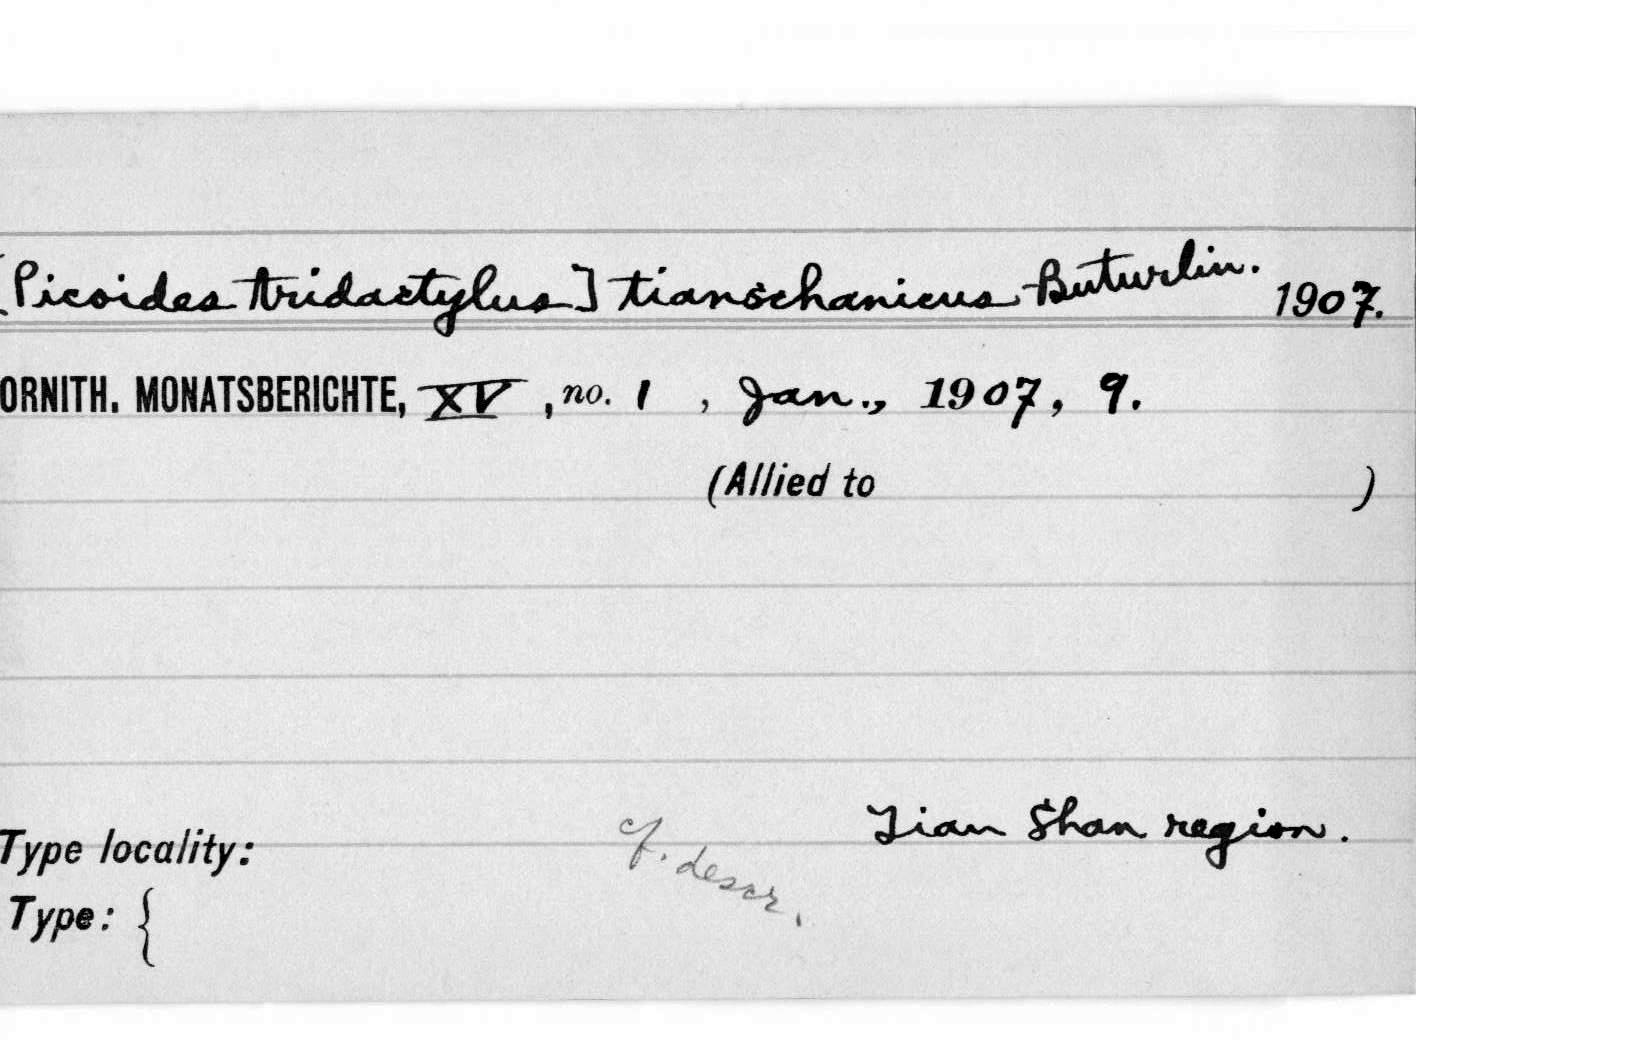 [Picoides tridactylus] tianschanicus Buturlin. 1907.
ORNITH. MONATSBERICHTE, XV, no. 1, Jan., 1907, 9.
(Allied to )
Type locality: cf. descr. Tian Shan region.
Type: {